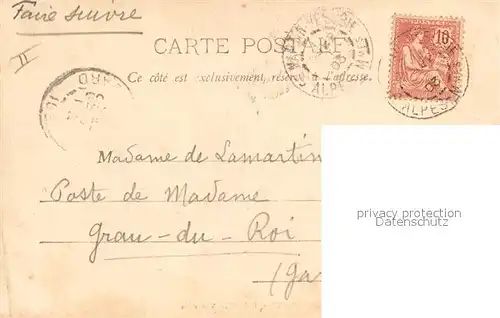 Faire suivre
II
CARTE POSTALE
Ce côté est exclusivement réservé à l'adresse.
10
ALPES
ALPES
GARD
Madame de Lamartin
Poste de Madame
Grau-du-Roi
(Ga
privacy protection
Datenschutz